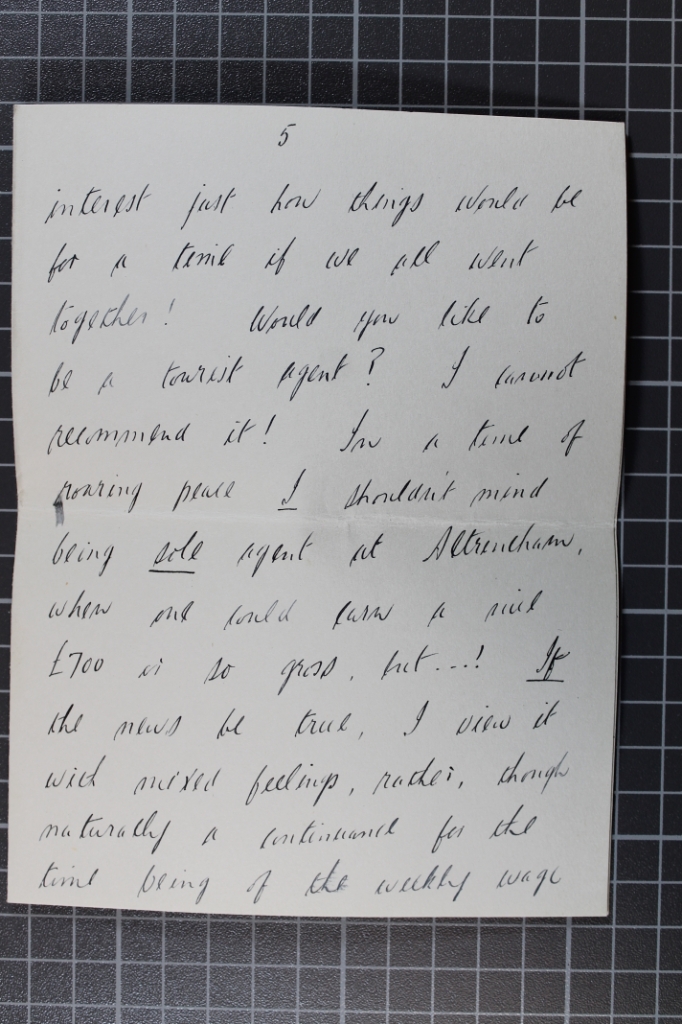 5
interest just how things would be
for a time if we all went
together! Would you like to
be a tourist agent? I cannot
recommend it! In a time of
roaring peace I shouldn't mind
being sole agent at Altrincham,
when one could earn a nice
£700 or so gross, but...! If
the news be true, I view it
with mixed feelings, rather, though
naturally a continuance for the
time being of the weekly wage